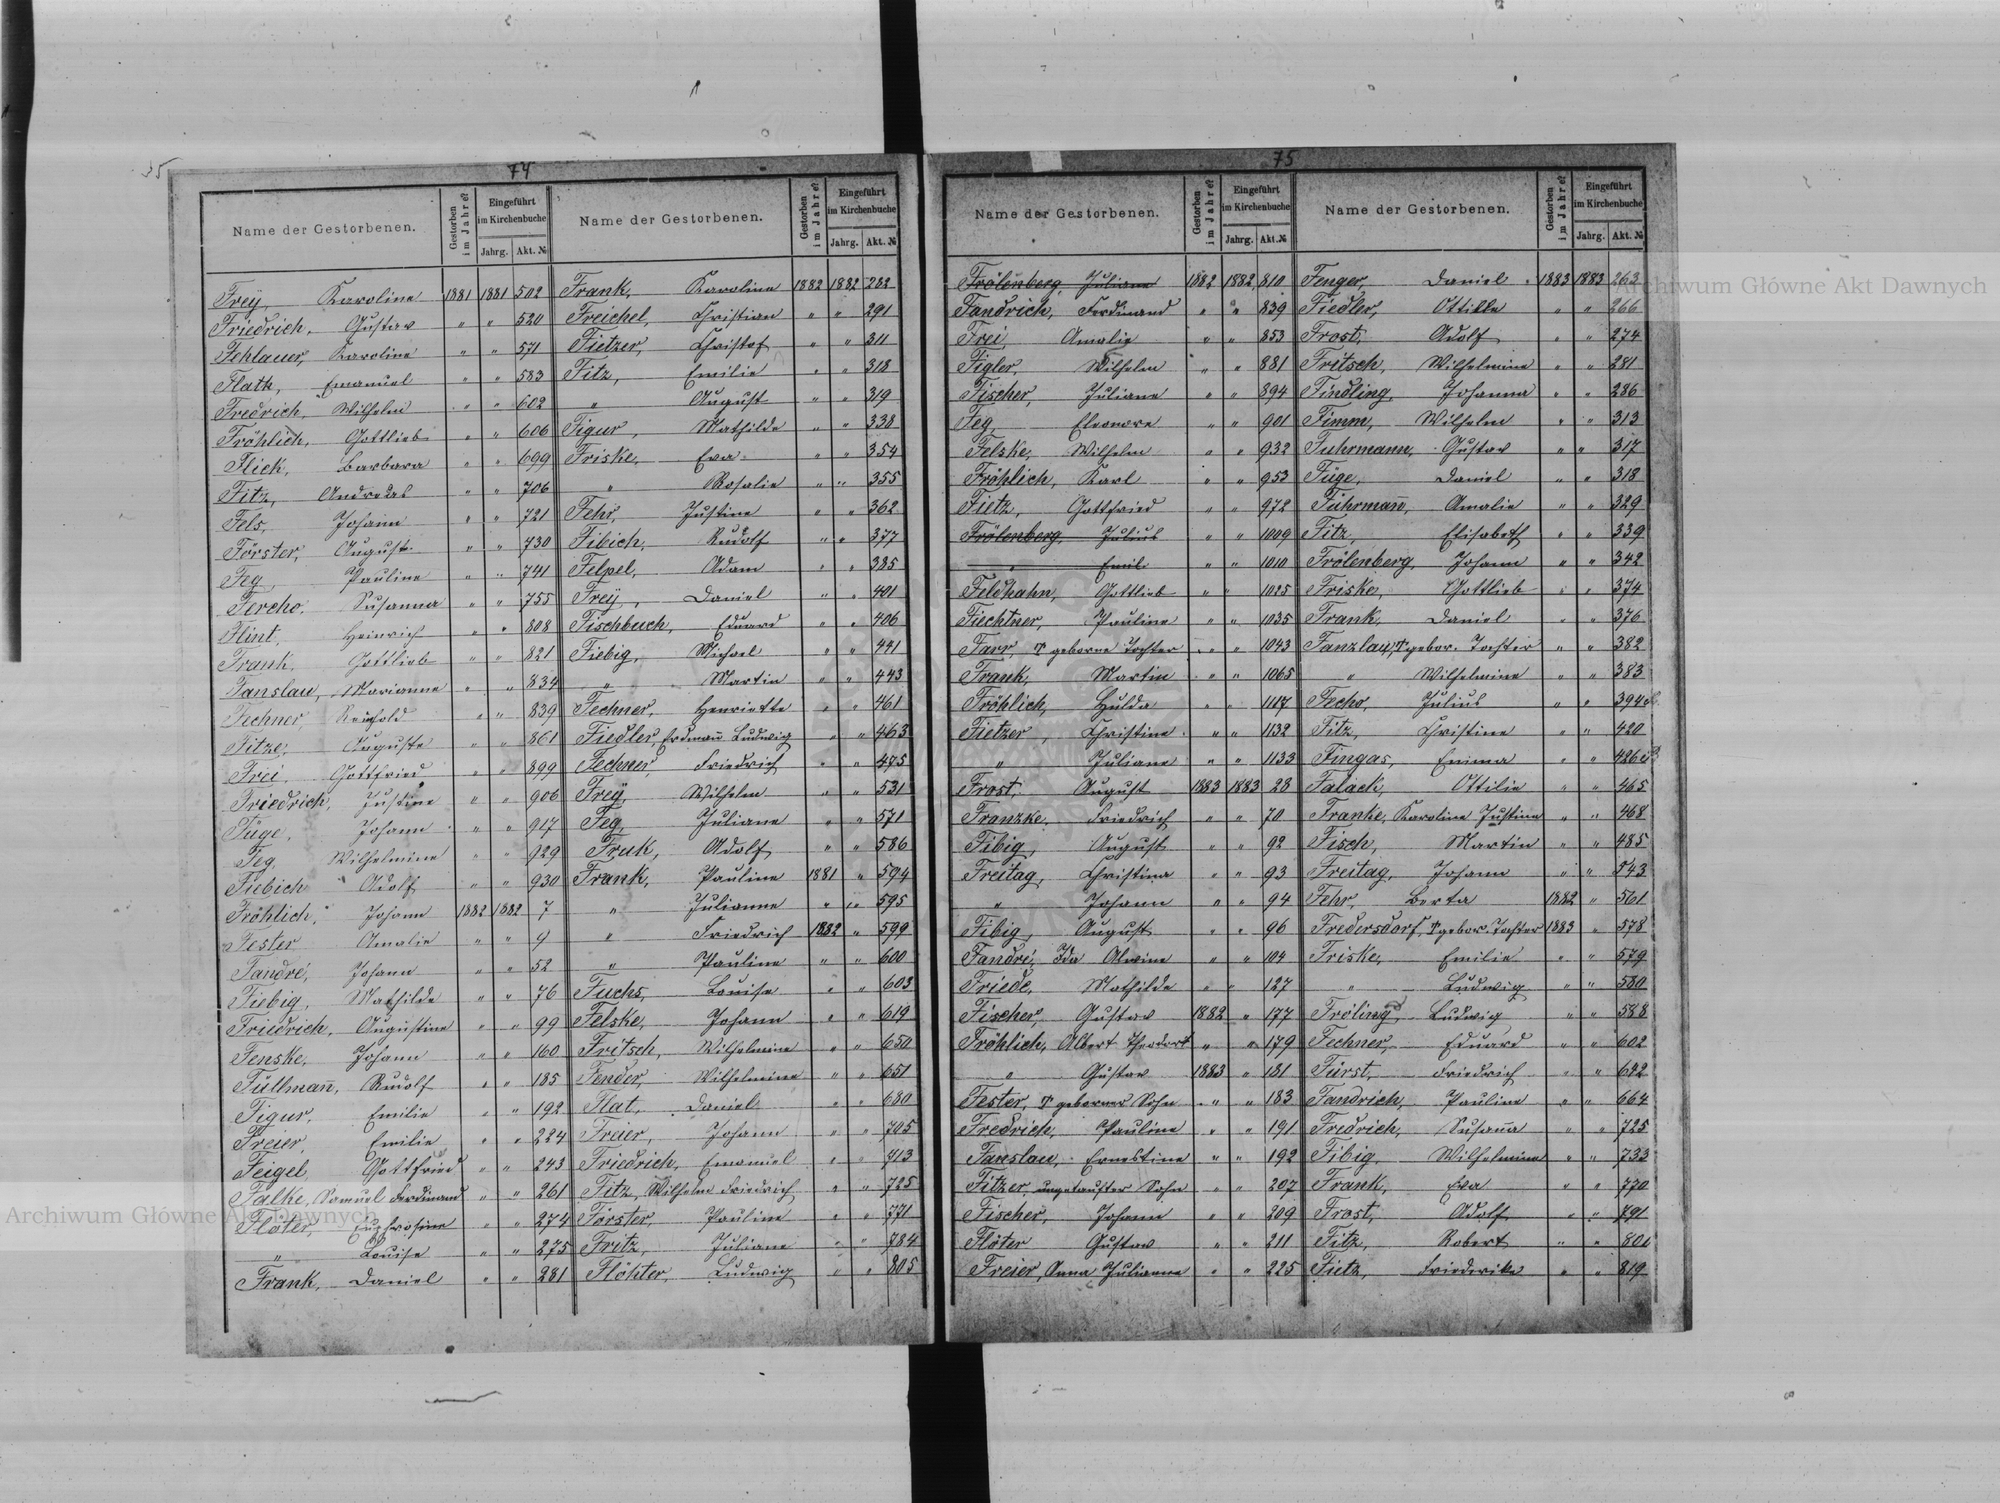 35
74
Name der Gestorbenen. Gestorben im Jahre? Eingeführt im Kirchenbuche Jahrg. Akt. №
Frey, Karoline 1881 1881 502
Friedrich, Gustav " " 520
Fehlauer, Karoline " " 571
Flath, Emanuel " " 583
Fredrich, Wilhelm " " 602
Fröhlich, Gottlieb " " 606
Flick, Barbara " " 699
Fitz, Andreas " " 706
Fels, Johann " " 721
Förster, August " " 730
Feg, Pauline " " 741
Fercho, Susanna " " 755
Flint, Heinrich " " 808
Frank, Gottlieb " " 821
Fanslau, Marianne " " 834
Fechner, Reinhold " " 839
Fitze, Auguste " " 861
Frei, Gottfried " " 899
Friedrich, Justine " " 906
Füge, Johann " " 917
Feg, Wilhelmine " " 929
Fiebich Adolf " " 930
Fröhlich, Johann 1882 1882 7
Fester Amalie " " 9
Fandré, Johann " " 52
Fiebig, Mathilde " " 76
Friedrich, Augustine " " 99
Fenske, Johann " " 160
Füllmañ, Rudolf " " 185
Figur, Emilie " " 192
Freier, Emilie " " 224
Feigel Gottfried " " 243
Falke, Samuel Ferdinand " " 261
Flöter, Euphrosine " " 274
" Louise " " 275
Frank, Daniel " " 281
Name der Gestorbenen. Gestorben im Jahre? Eingeführt im Kirchenbuche Jahrg. Akt. №
Frank, Karoline 1882 1882 282
Freichel, Christian " " 291
Fietzer, Christof " " 311
Fitz, Emilie " " 318
" August " " 319
Figur, Mathilde " " 338
Friske, Eva " " 354
" Rosalie " " 355
Fehr, Justine " " 362
Fibich, Rudolf " " 377
Felpel, Adam " " 385
Frey, Daniel " " 401
Fischbuch, Eduard " " 406
Fiebig, Michael " " 441
" Martin " " 443
Fechner, Henriette " " 461
Fiedler, Erdmañ Ludwig " " 463
Fechner, Friedrich " " 475
Frey, Wilhelm " " 531
Feg, Juliane " " 571
Fruk, Adolf " " 586
Frank, Pauline 1881 " 594
" Julianne " " 595
" Friedrich 1882 " 599
" Pauline " " 600
Fuchs, Louise " " 603
Felske, Johann " " 619
Fritsch, Wilhelmine " " 650
Fender, Wilhelmine " " 651
Flat, Daniel " " 680
Freier, Johann " " 705
Friedrich, Emanuel " " 713
Fitz, Wilhelm Friedrich " " 725
Förster, Pauline " " 771
Fritz, Juliane " " 784
Flöhter, Ludwig " " 805
75
Name der Gestorbenen. Gestorben im Jahre? Eingeführt im Kirchenbuche Jahrg. Akt. №
Frölenberg, Juliane 1882 1882 810
Fandrich, Ferdinand " " 839
Frei, Amalie " " 853
Figler, Wilhelm " " 881
Fischer, Juliane " " 894
Feg, Eleonore " " 901
Felske, Wilhelm " " 932
Fröhlich, Karl " " 953
Fietz, Gottfried " " 972
Frölenberg, Julius " " 1009
" Emil " " 1010
Feldhahn, Gottlieb " " 1025
Fiechtner, Pauline " " 1035
Farr, T geborne Tochter " " 1043
Frank, Martin " " 1065
Fröhlich, Hulda " " 1117
Fietzer, Christine " " 1132
" Juliane " " 1133
Frost, August 1883 1883 28
Franzke, Friedrich " " 70
Fibig, August " " 92
Freitag, Christina " " 93
" Johann " " 94
Fibig, August " " 96
Fandré, Ida Alwine " " 104
Friede, Mathilde " " 127
Fischer, Gustav 1882 " 177
Fröhlich, Albert Theodort " " 179
" Gustav 1883 " 181
Fester, T geborner Sohn " " 183
Fredrich, Pauline " " 191
Fanslau, Ernestine " " 192
Fitzer, ungetaufter Sohn " " 207
Fischer, Johann " " 209
Flöter Gustav " " 211
Freier, Anna Julianne " " 225
Name der Gestorbenen. Gestorben im Jahre? Eingeführt im Kirchenbuche Jahrg. Akt. №
Fenger, Daniel 1883 1883 263
Fiedler, Ottilie " " 266
Frost, Adolf " " 274
Fritsch, Wilhelmine " " 281
Findling, Johanna " " 286
Fimm, Wilhelm " " 313
Fuhrmann, Gustav " " 317
Füge, Daniel " " 318
Fuhrmañ, Amalie " " 329
Fitz, Elisabeth " " 339
Frölenberg, Johann " " 342
Friske, Gottlieb " " 374
Frank, Daniel " " 376
Fanzlau, T gebor. Tochter " " 382
" Wilhelmine " " 383
Fecho, Julius " " 394
Fitz, Christine " " 420
Fingas, Emma " " 426
Falack, Ottilie " " 465
Franke, Karoline Justine " " 468
Fisch, Martin " " 485
Freitag, Johann " " 543
Fehr Berta 1882 " 561
Fredersdorf, T gebor. Tochter 1883 " 578
Friske, Emilie " " 579
" Ludwig " " 580
Fröling, Ludwig " " 588
Fechner, Eduard " " 602
Fürst, Friedrich " " 622
Fandrich, Pauline " " 664
Fredrich, Susaña " " 725
Fibig, Wilhelmine " " 733
Frank, Eva " " 770
Frost, Adolf " " 791
Fitz, Robert " " 801
Fietz, Friederike " " 819
Archiwum Główne Akt Dawnych
Archiwum Główne Akt Dawnych